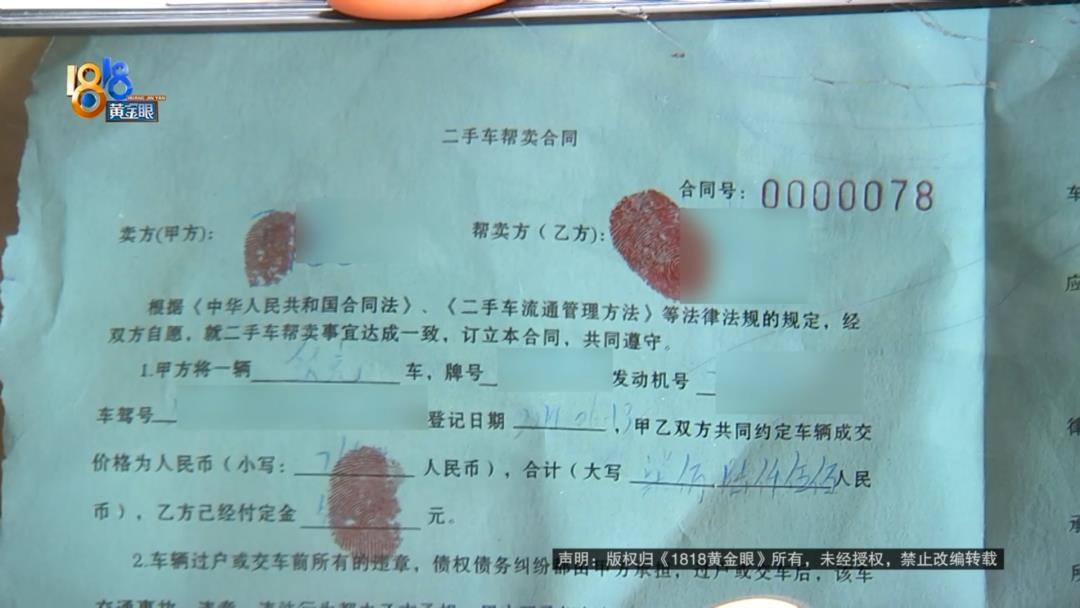 1818
HUANG JIN YAN
黄金眼
二手车帮卖合同
合同号：0000078
卖方(甲方)：
帮卖方（乙方）：
根据《中华人民共和国合同法》、《二手车流通管理方法》等法律法规的规定，经
双方自愿，就二手车帮卖事宜达成一致，订立本合同，共同遵守。
1.甲方将一辆 车，牌号 发动机号
车驾号 登记日期 ，甲乙双方共同约定车辆成交
价格为人民币（小写： 人民币），合计（大写 人民
币），乙方已经付定金 元。
2.车辆过户或交车前所有的违章，债权债务纠纷都由甲方承担，过户或交车后，该车
声明：版权归《1818黄金眼》所有，未经授权，禁止改编转载
车
应
律
承
所